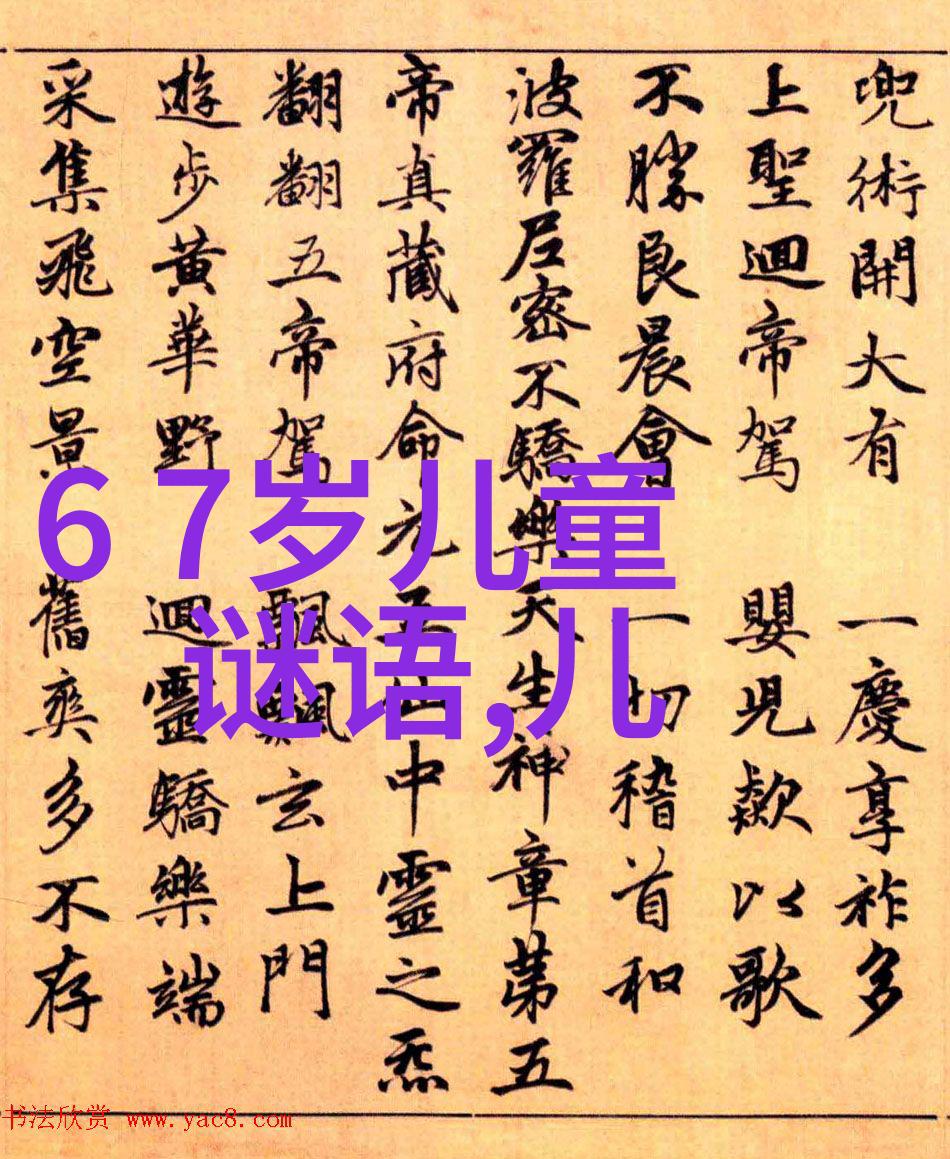 兜術開大有 一慶享祚多
上聖迴帝駕 嬰児歎以歌
不勝良晨會 一切稽首和
波羅尼密不驕樂天生神章第五
帝真藏府命元王仙中靈之炁
翻翻五帝駕 飄飄玄上門
遊步黃華野 迴靈驕樂端
采集飛空景 舊爽多不存
6 7岁儿童
谜语,儿
书法欣赏 www.yac8.com